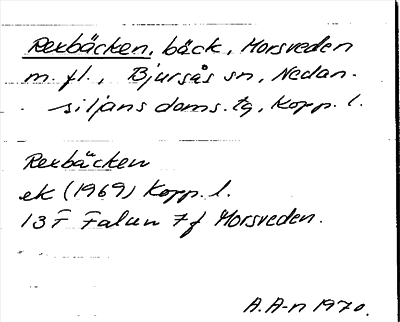 Rexbäcken, bäck, Morsveden
m. fl., Bjursås sn, Nedan-
siljans doms. tg, Kopp. l.
Rexbäcken
ek (1969) Kopp. l.
13F Falun 7f Morsveden.
A.A-n 1970.